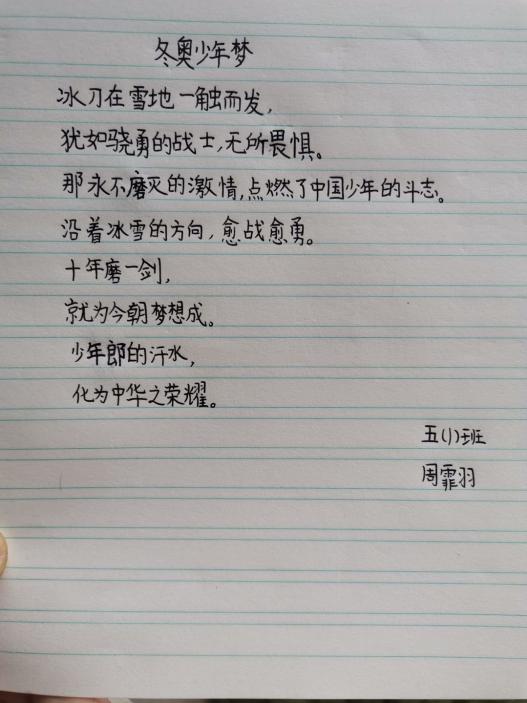 冬奥少年梦
冰刀在雪地一触而发，
犹如骁勇的战士，无所畏惧。
那永不磨灭的激情，点燃了中国少年的斗志。
沿着冰雪的方向，愈战愈勇。
十年磨一剑，
就为今朝梦想成。
少年郎的汗水，
化为中华之荣耀。
五(1)班
周霏羽